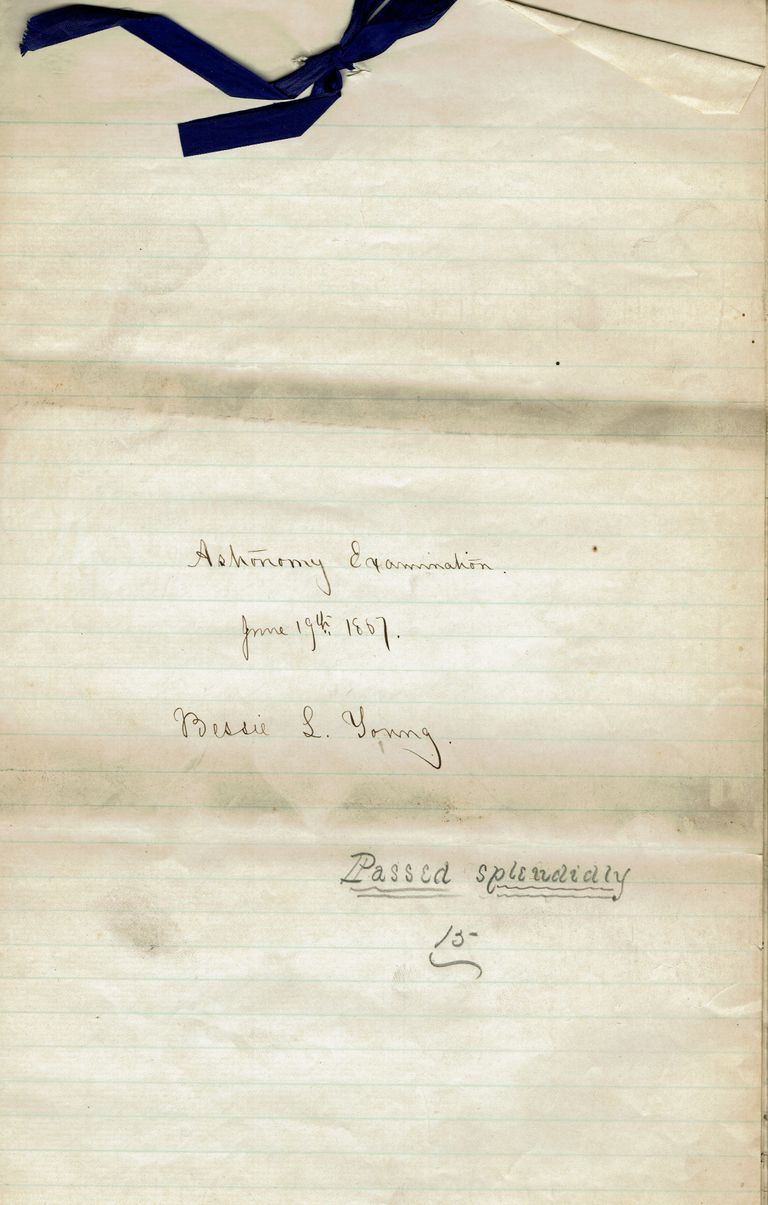 Astronomy Examination.
June 19th 1867.
Bessie L. Young.
Passed splendidly
15